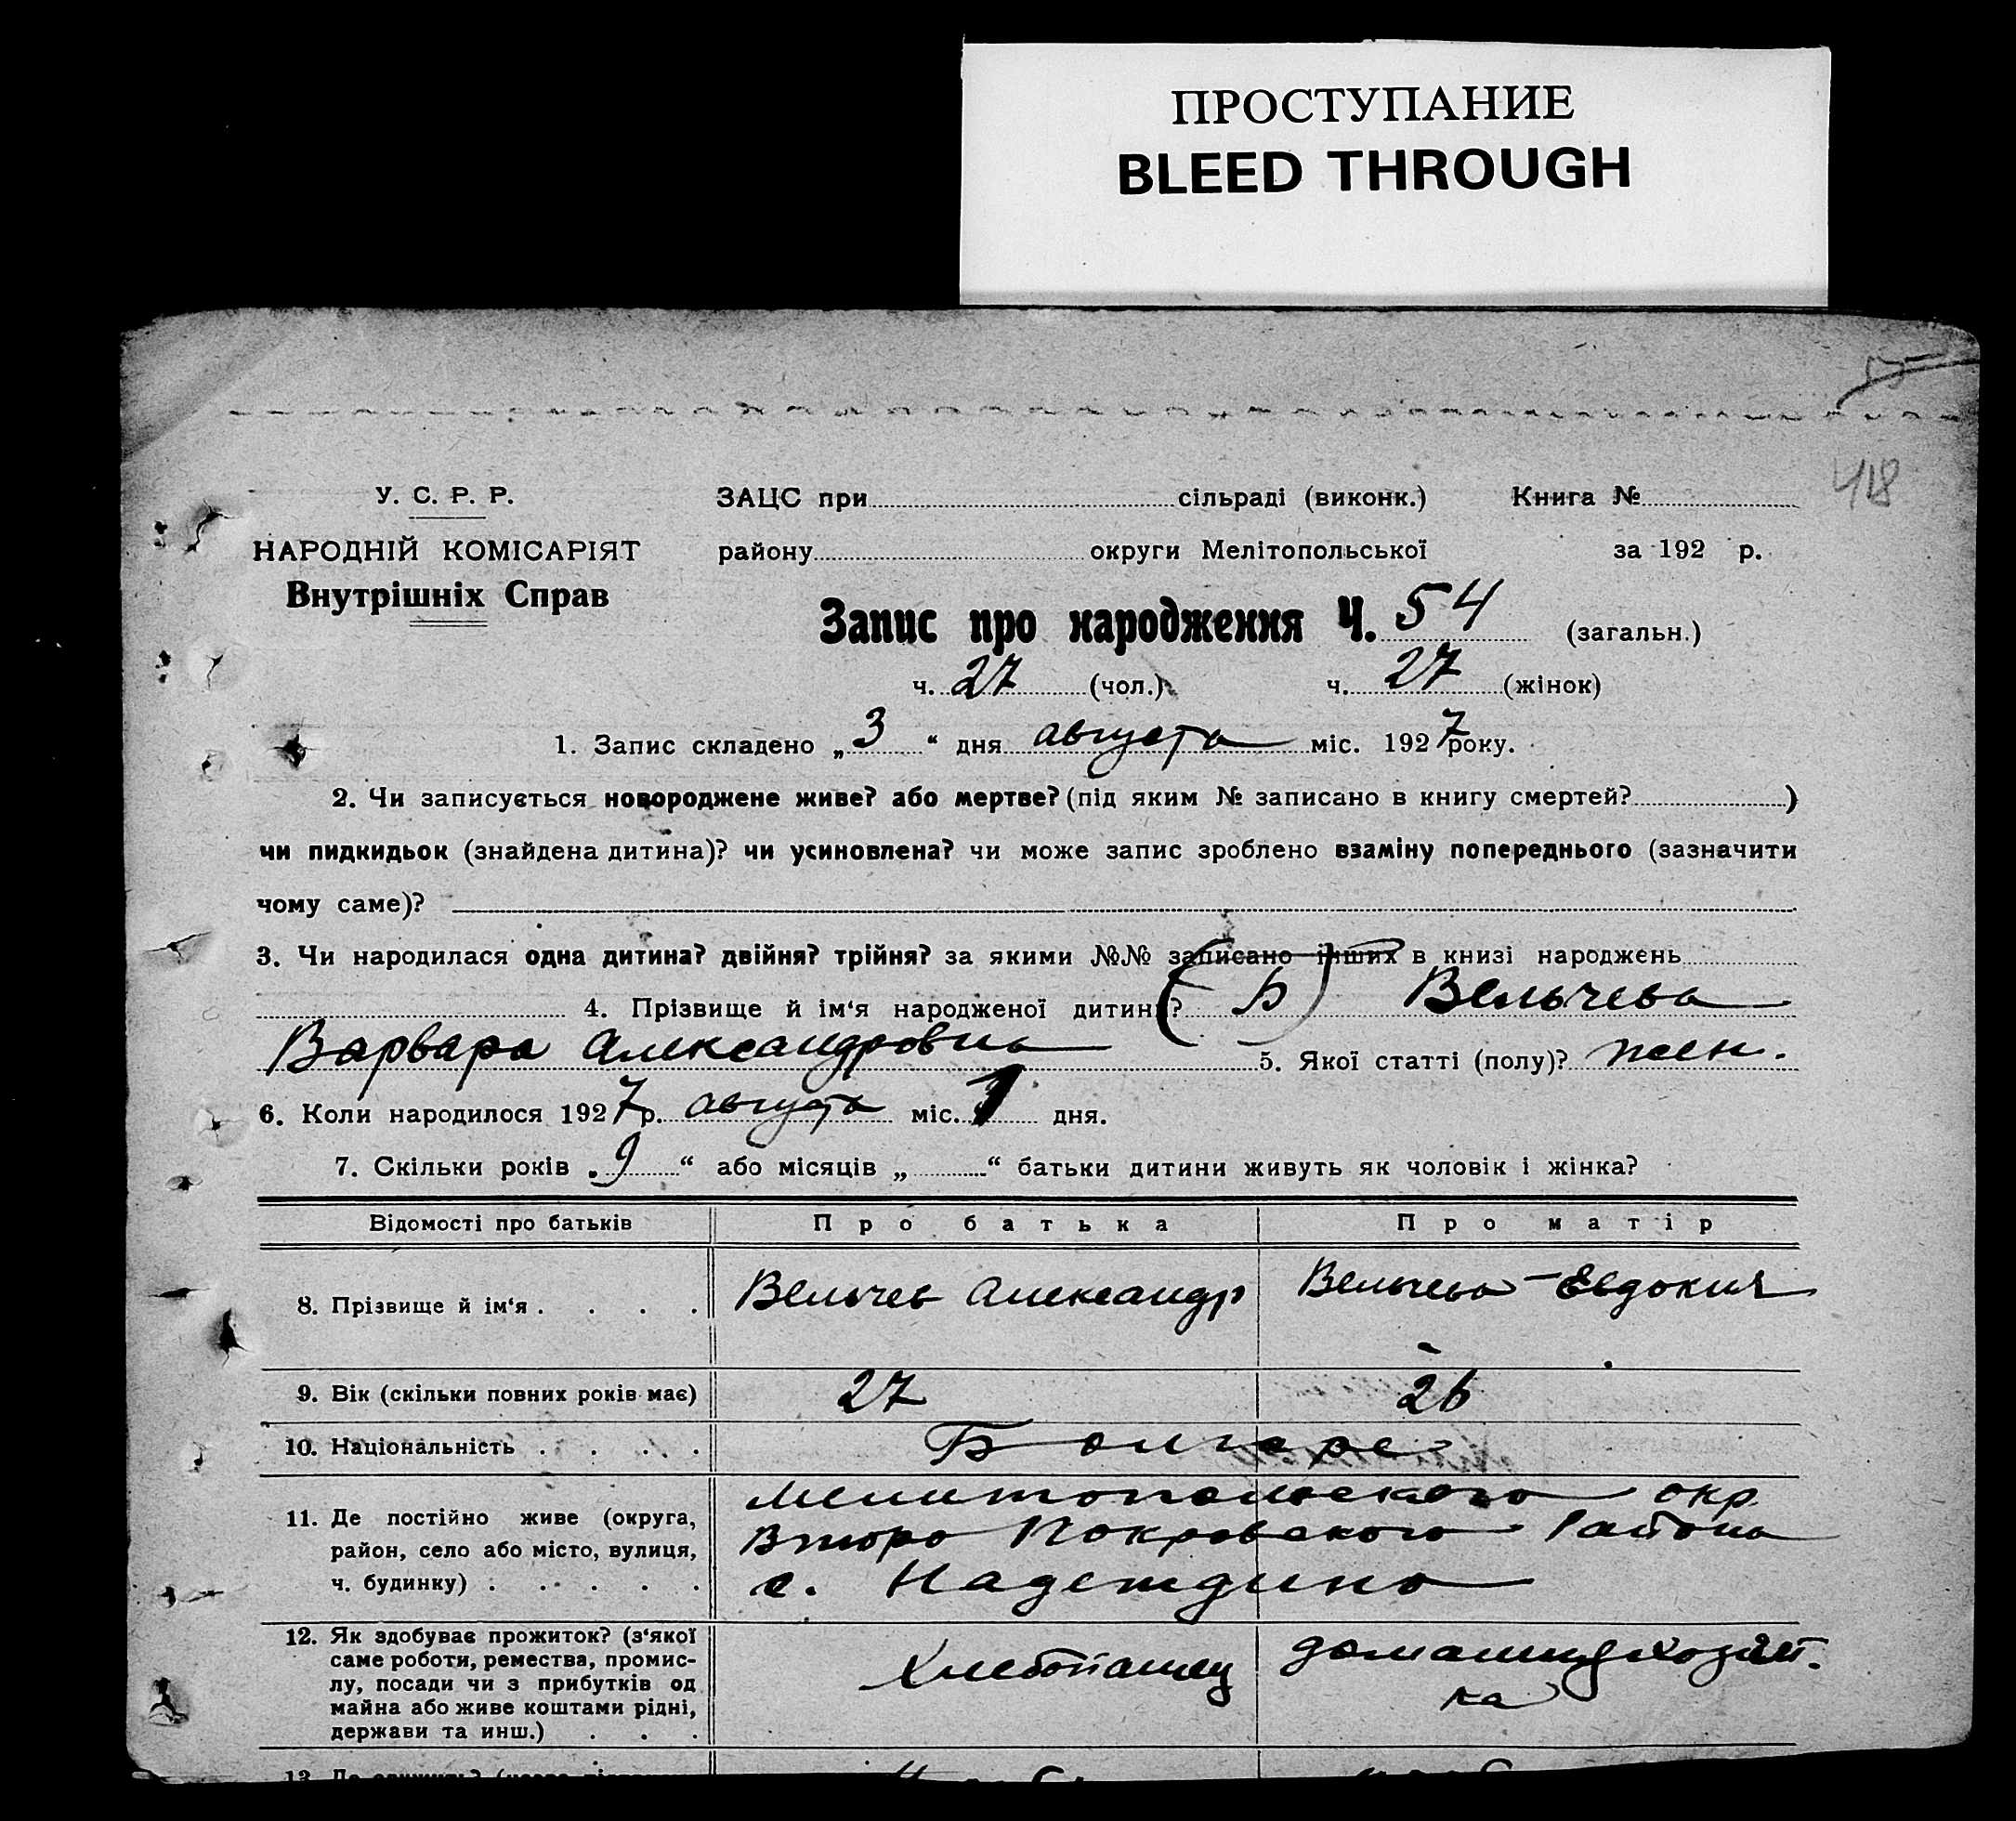 ПРОСТУПАНИЕ
BLEED THROUGH
418
У. С. Р. Р.
НАРОДНІЙ КОМІСАРІЯТ
Внутрішніх Справ
ЗАЦС при сільраді (виконк.) Книга №
району округи Мелітопольської за 192 р.
Запис про народження Ч. 54 (загальн.)
ч. 27 (чол.) ч. 27 (жінок)
1. Запис складено „ 3 “ дня августа міс. 1927 року.
2. Чи записується новороджене живе? або мертве? (під яким № записано в книгу смертей? )
чи пидкидьок (знайдена дитина)? чи усиновлена? чи може запис зроблено взаміну попереднього (зазначити
чому саме)?
3. Чи народилася одна дитина? двійня? трійня? за якими №№ записано інших в книзі народжень
4. Прізвище й ім‘я народженої дитини? Вельчева
Варвара Александровна 5. Якої статті (полу)? жен.
6. Коли народилося 1927 р. августа міс. 1 дня.
7. Скільки років „ 9 “ або місяців „ “ батьки дитини живуть як чоловік і жінка?
Відомості про батьків Про батька Про матір
8. Прізвище й ім‘я . . . . Вельчев Александр Вельчева - Евдокия
9. Вік (скільки повних років має) 27 26
10. Національність . . . . Болгаре
11. Де постійно живе (округа, Мелитопольского окр.
район, село або місто, вулиця, Второ Покровского Района
ч. будинку) . . . . . с. Надеждино
12. Як здобуває прожиток? (з‘якої
саме роботи, ремества, промис-
лу, посади чи з прибутків од
майна або живе коштами рідні,
держави та инш.) . . .
Хлебопашец домашняя хозяй-
ка